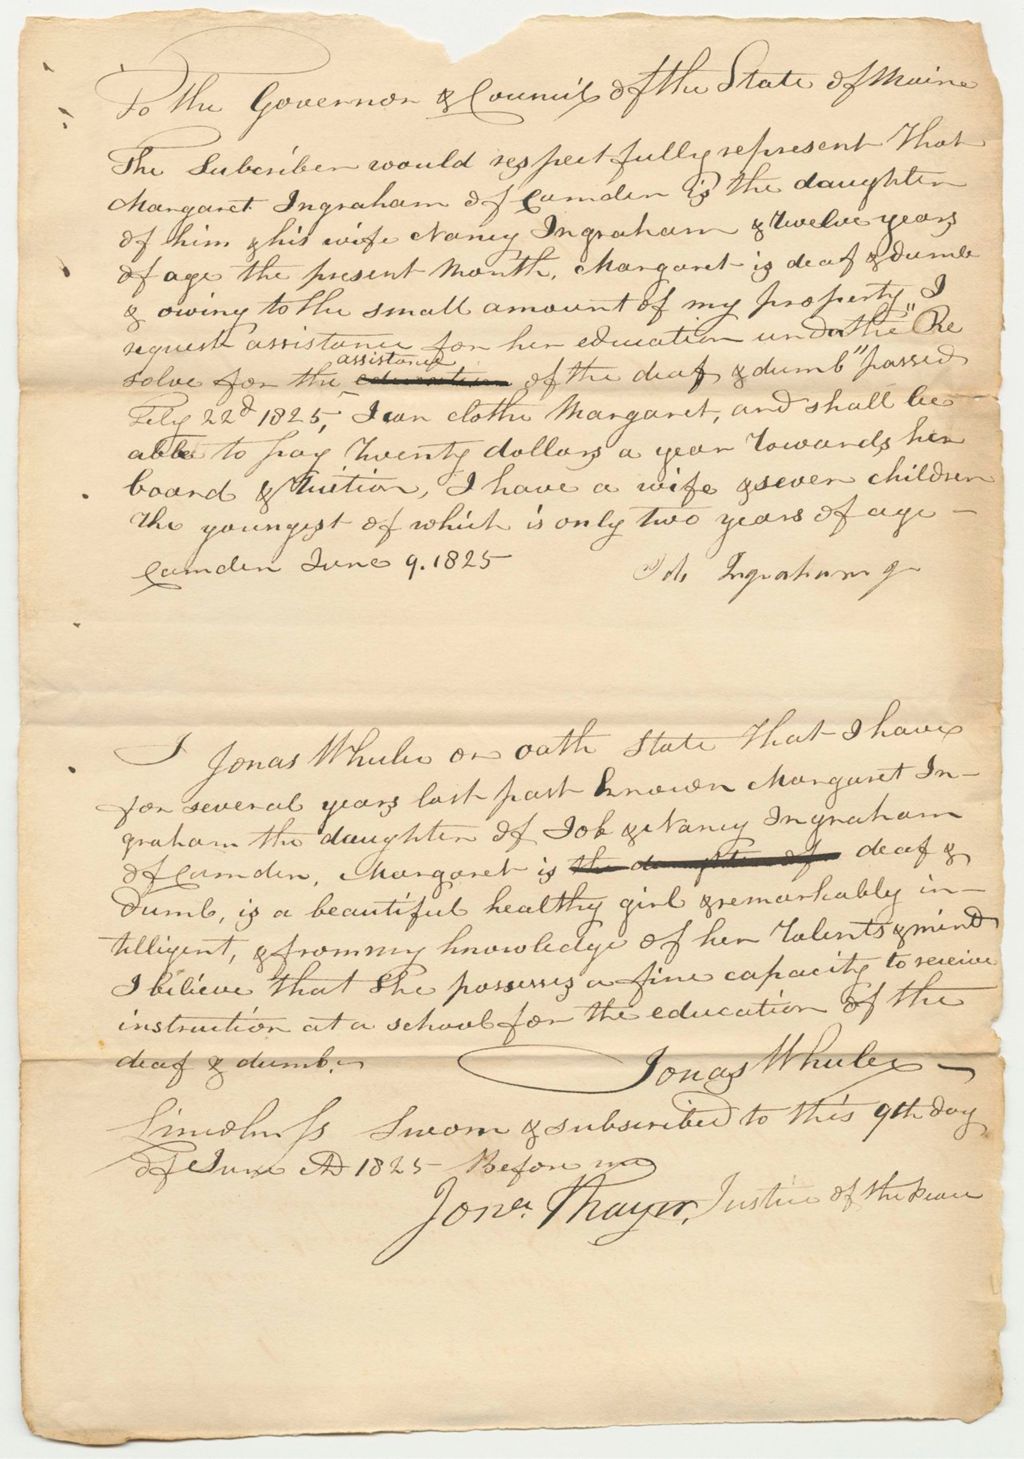 To the Governor & Council of the State of Maine
The Subscriber would respectfully represent that
Margaret Ingraham of Camden is the daughter
of him & his wife Nancy Ingraham & twelve years
of age the present month. Margaret is deaf & dumb
& owing to the small amount of my property, I
request assistance for her education under the "Re
solve for the education assistance of the deaf & dumb" passed
Feby 22d 1825, I can clothe Margaret, and shall be
able to pay twenty dollars a year towards her
board & tuition, I have a wife & seven children
the youngest of which is only two years of age -
Camden June 9. 1825 Job Ingraham Jr
I Jonas Wheeler on oath state that I have
for several years last past known Margaret In-
graham the daughter of Job & Nancy Ingraham
of Camden, Margaret is the daughter of deaf &
dumb, is a beautiful healthy girl & remarkably in-
telligent, & from my knowledge of her talents & mind
I believe that she possesses a fine capacity to receive
instruction at a school for the education of the
deaf & dumb.
Jonas Wheeler
Lincoln Ss Sworn & subscribed to this 9th day
of June AD 1825 Before me
Jona. Thayer, Justice of the Peace